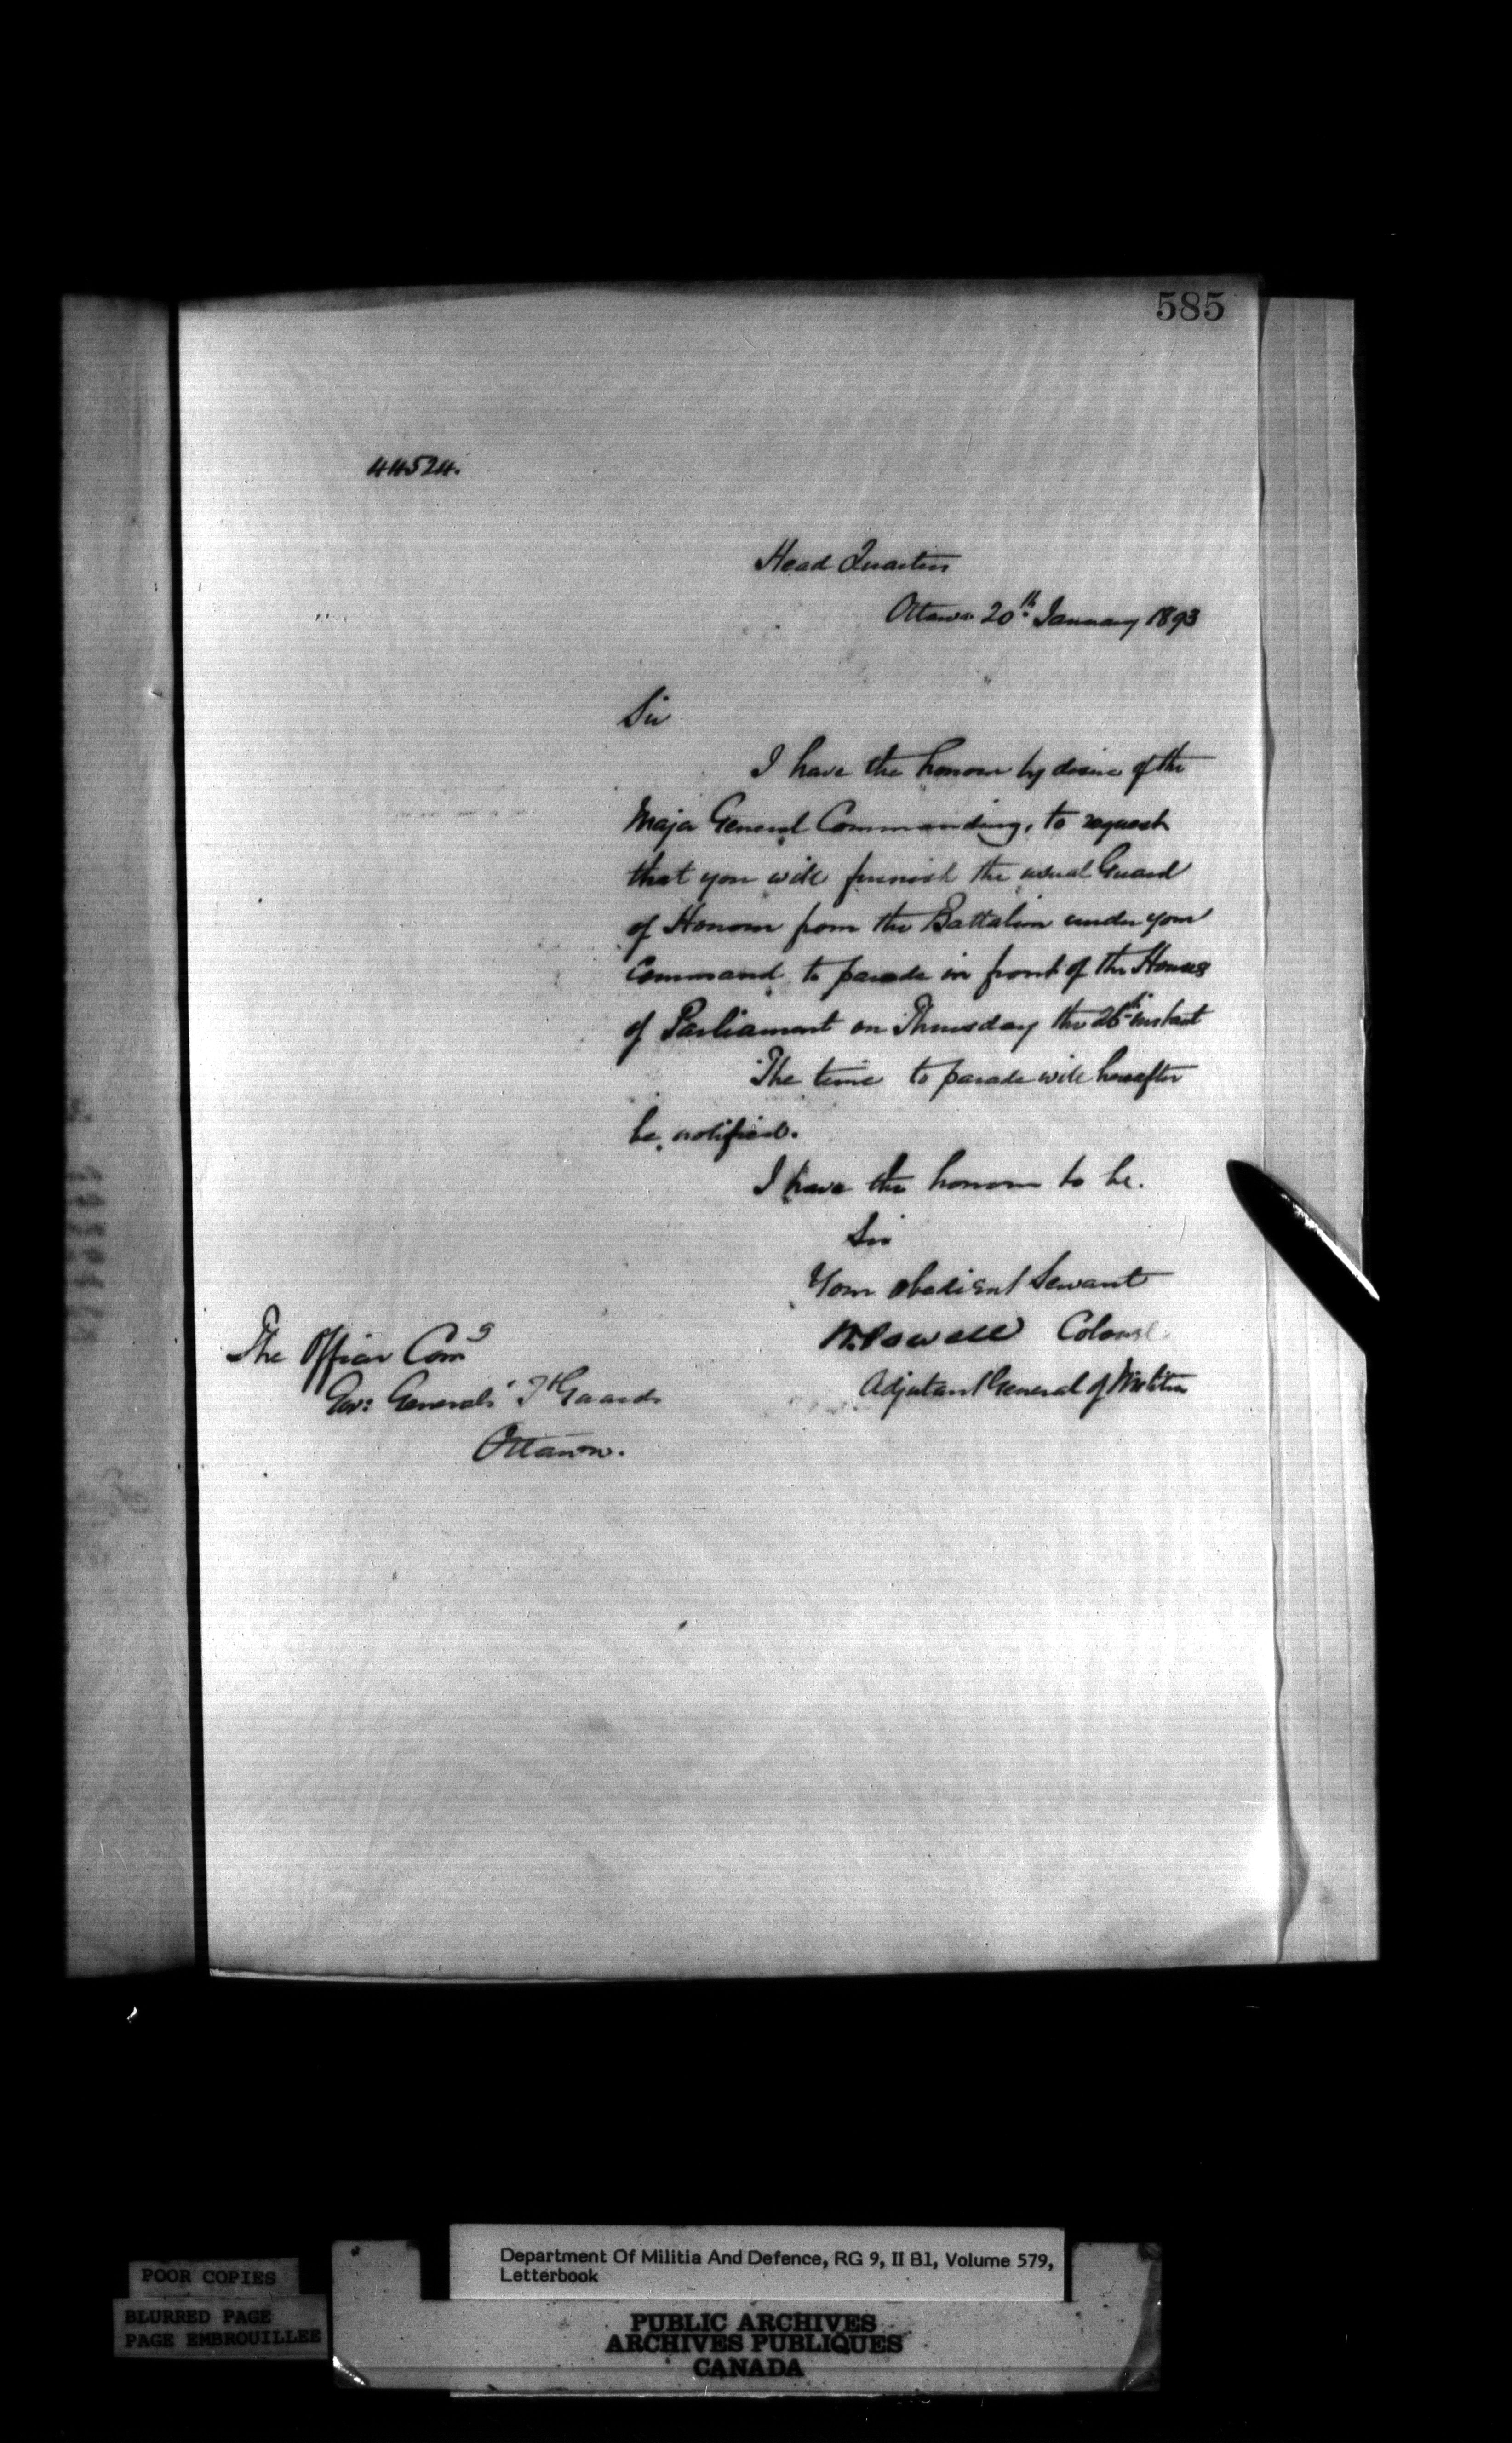 585
44524.
Head Quarters
Ottawa 20th January 1893
Sir
I have the honour by desire of the
Major General Commanding, to request
that you will furnish the usual Guard
of Honour from the Battalion under your
Command to parade in front of the Houses
of Parliament on Thursday the 26th instant
The time to parade will hereafter
be notified.
I have the honour to be.
Sir
Your obedient Servant
W. Powell Colonel
Adjutant General of Militia
The Officer Comg
Gov: Generals' Ft Guards
Ottawa.
POOR COPIES
BLURRED PAGE
PAGE EMBROUILLEE
Department Of Militia And Defence, RG 9, II B1, Volume 579,
Letterbook
PUBLIC ARCHIVES
ARCHIVES PUBLIQUES
CANADA